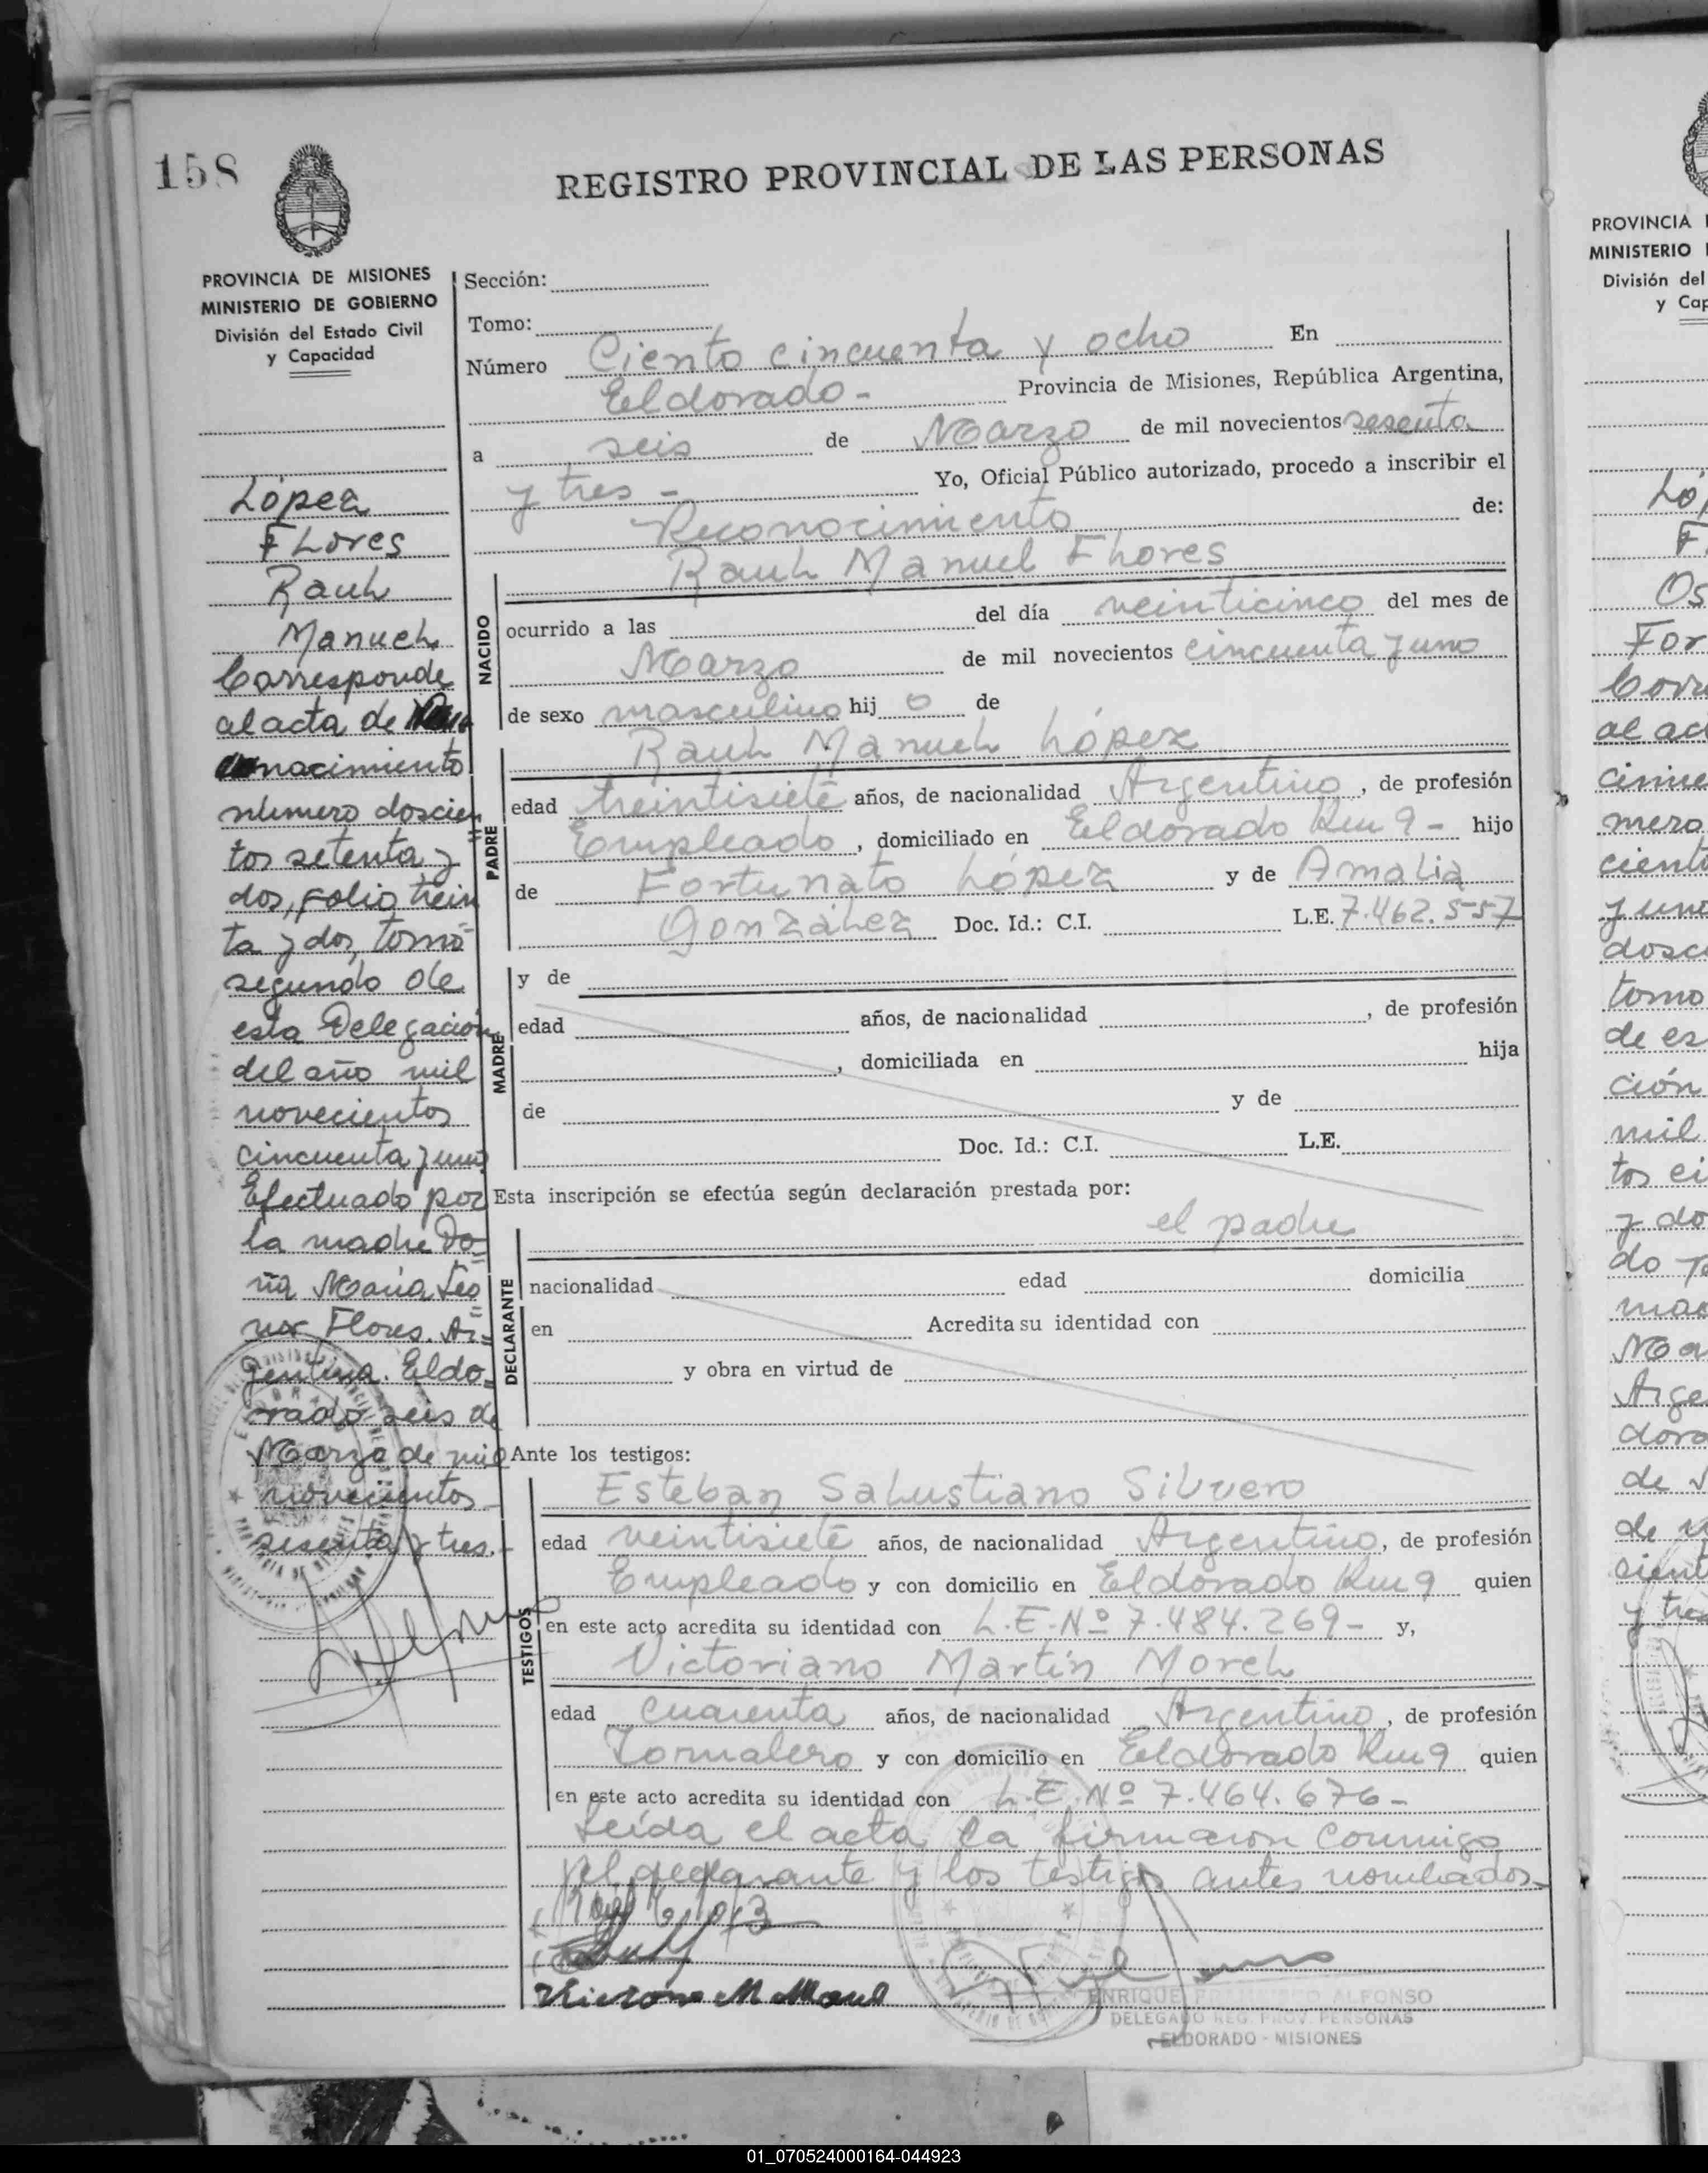 158
REGISTRO PROVINCIAL DE LAS PERSONAS
PROVINCIA DE MISIONES
MINISTERIO DE GOBIERNO
División del Estado Civil
y Capacidad
López
Flores
Raul
Manuel
Corresponde
al acta de
nacimiento
número doscien
tos setenta y
dos, folio trein
ta y dos, tomo
segundo de
esta Delegación
del año mil
novecientos
cincuenta y uno
Efectuado por
la madre Do=
ña María Leo=
nor Flores. Ar=
gentina. Eldo=
rado seis de
Marzo de mil
novecientos
sesenta y tres.-
Sección:
Tomo:
Número Ciento cincuenta y ocho En
Eldorado - Provincia de Misiones, República Argentina,
a seis de Marzo de mil novecientos sesenta
y tres - Yo, Oficial Público autorizado, procedo a inscribir el
Reconocimiento de:
Raul Manuel Flores
NACIDO
ocurrido a las del día veinticinco del mes de
Marzo de mil novecientos cincuenta y uno
de sexo masculino hij o de
Raul Manuel López
PADRE
edad treintisiete años, de nacionalidad Argentino, de profesión
Empleado, domiciliado en Eldorado Km 9 - hijo
de Fortunato López y de Amalia
González Doc. Id.: C.I. L.E. 7.462.557
MADRE
y de
edad años, de nacionalidad , de profesión
, domiciliada en hija
de y de
Doc. Id.: C.I. L.E.
Esta inscripción se efectúa según declaración prestada por:
el padre
DECLARANTE
nacionalidad edad domicilia
en Acredita su identidad con
y obra en virtud de
Ante los testigos:
TESTIGOS
Esteban Salustiano Silvero
edad veintisiete años, de nacionalidad Argentino, de profesión
Empleado y con domicilio en Eldorado Km 9 quien
en este acto acredita su identidad con L.E. Nº 7.484.269 - y,
Victoriano Martín Morel
edad cuarenta años, de nacionalidad Argentino, de profesión
Jornalero y con domicilio en Eldorado Km 9 quien
en este acto acredita su identidad con L.E. Nº 7.464.676 -
Leída el acta la firmaron conmigo
el declarante y los testigos antes nombrados.-
ENRIQUE FRANCISCO ALFONSO
DELEGADO REG. PROV. PERSONAS
ELDORADO - MISIONES
PROVINCIA
MINISTERIO
División del
y Cap
Ló
F
Os
For
Corr
al ac
cimie
mero
ciento
y uno
dosc
tomo
de es
ción
mil
tos ci
y do
do
mad
Ma
Arge
dora
de
de
cient
y tre
01_070524000164-044923